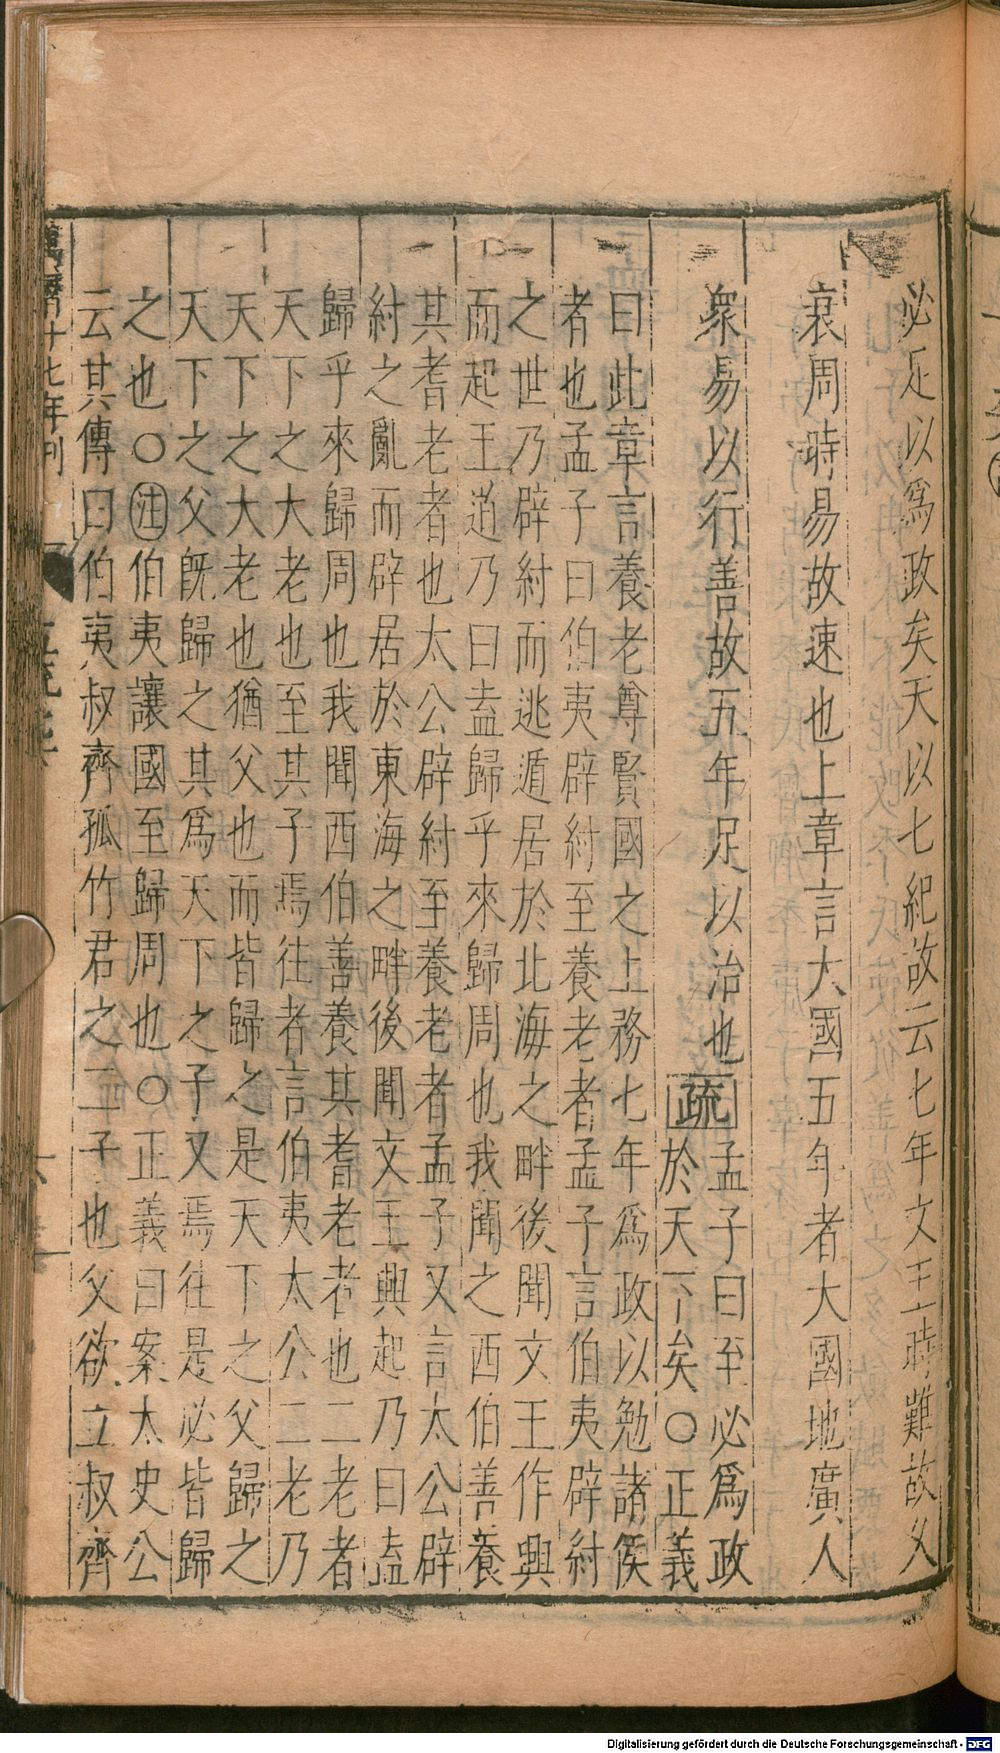 必足以為政矣天以七紀故云七年文王時難故久
衰周時易故速也上章言大國五年者大國地廣人
衆易以行善故五年足以治也疏孟子曰至必爲政
於天下矣○正義
曰此章言養老尊賢國之上務七年爲政以勉諸侯
者也孟子曰伯夷辟紂至養老者孟子言伯夷辟紂
之世乃辟紂而逃遁居於北海之畔後聞文王作興
而起王道乃曰盍歸乎來歸周也我聞之西伯善養
其耆老者也太公辟紂至養老者孟子又言太公辟
紂之亂而辟居於東海之畔後聞文王興起乃曰盍
歸乎來歸周也我聞西伯善養其耆老者也二老者
天下之大老也至其子焉往者言伯夷太公二老乃
天下之大老也猶父也而皆歸之是天下之父歸之
天下之父旣歸之其爲天下之子又焉往是必皆歸
之也○注伯夷讓國至歸周也○正義曰案太史公
云其傳曰伯夷叔齊孤竹君之二子也父欲立叔齊
萬曆十七年刊
Digitalisierung gefördert durch die Deutsche Forschungsgemeinschaft - DFG